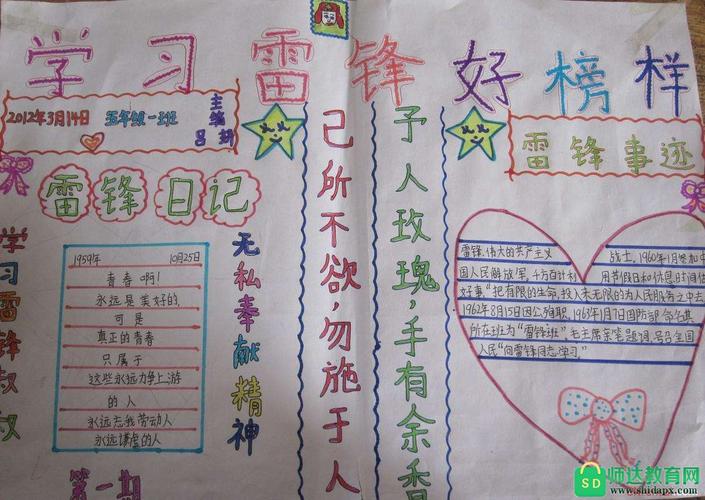 学习雷锋好榜样
2012年3月14日 五年级一班
主编
吕妍
雷锋日记
学习雷锋叔叔
1959年 10月25日
青春啊！
永远是美好的，
可是
真正的青春
只属于
这些永远力争上游
的人
永远忘我劳动人
永远谦虚的人
无私奉献精神
第一期
己所不欲，勿施于人
予人玫瑰，手有余香
雷锋事迹
雷锋，伟大的共产主义 战士，1960年1月参加中
国人民解放军，千方百计利 用节假日和休息时间
好事，"把有限的生命，投入未无限的为人民服务之中去
1962年8月15日因公殉职，1963年1月7日国防部命名其
所在班为"雷锋班"，毛主席亲笔题词，号召全国
人民"向雷锋同志学习。"
SD 师达教育网
www.shidapx.com